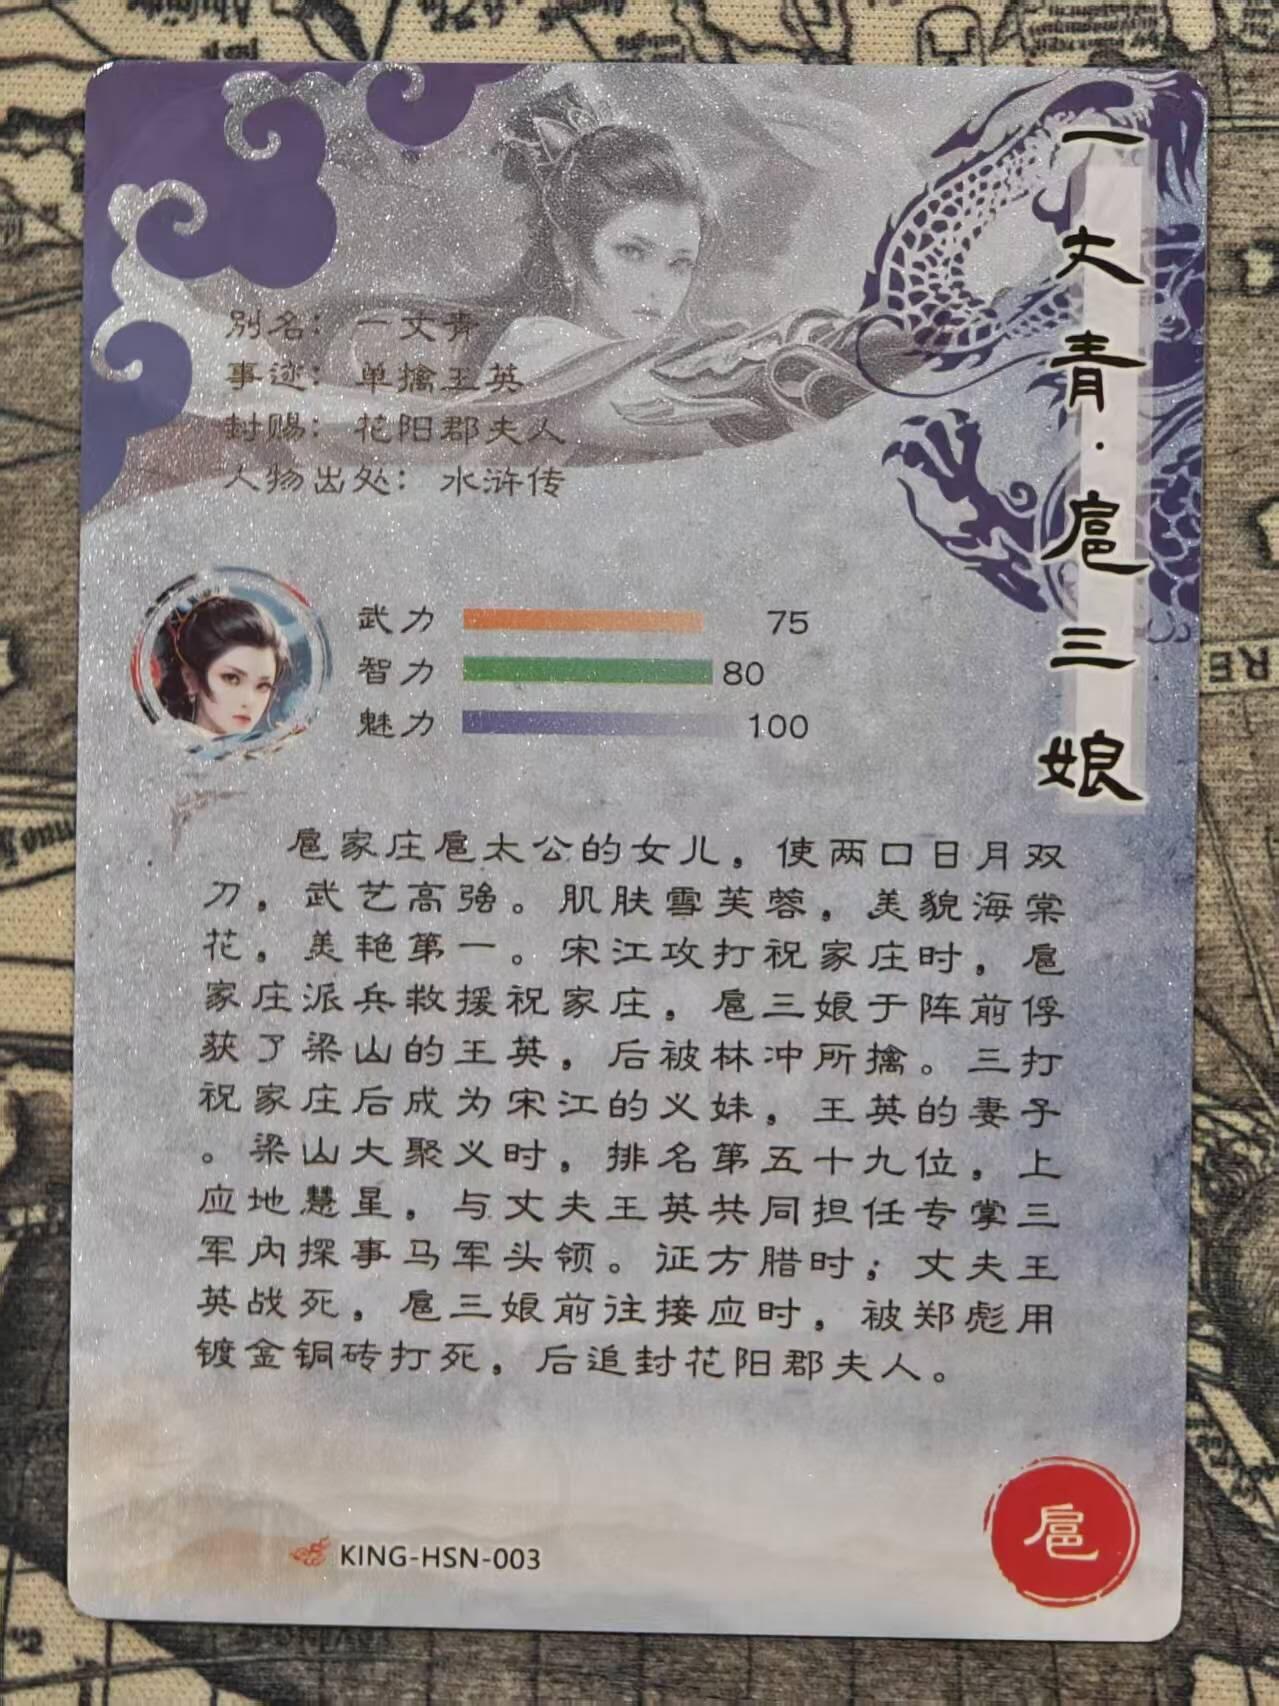 一丈青·扈三娘
别名：一丈青
事迹：单擒王英
封赐：花阳郡夫人
人物出处：水浒传
武力 75
智力 80
魅力 100
扈家庄扈太公的女儿，使两口日月双
刀，武艺高强。肌肤雪芙蓉，美貌海棠
花，美艳第一。宋江攻打祝家庄时，扈
家庄派兵救援祝家庄，扈三娘于阵前俘
获了梁山的王英，后被林冲所擒。三打
祝家庄后成为宋江的义妹，王英的妻子
。梁山大聚义时，排名第五十九位，上
应地慧星，与丈夫王英共同担任专掌三
军内探事马军头领。证方腊时；丈夫王
英战死，扈三娘前往接应时，被郑彪用
镀金铜砖打死，后追封花阳郡夫人。
KING-HSN-003
扈